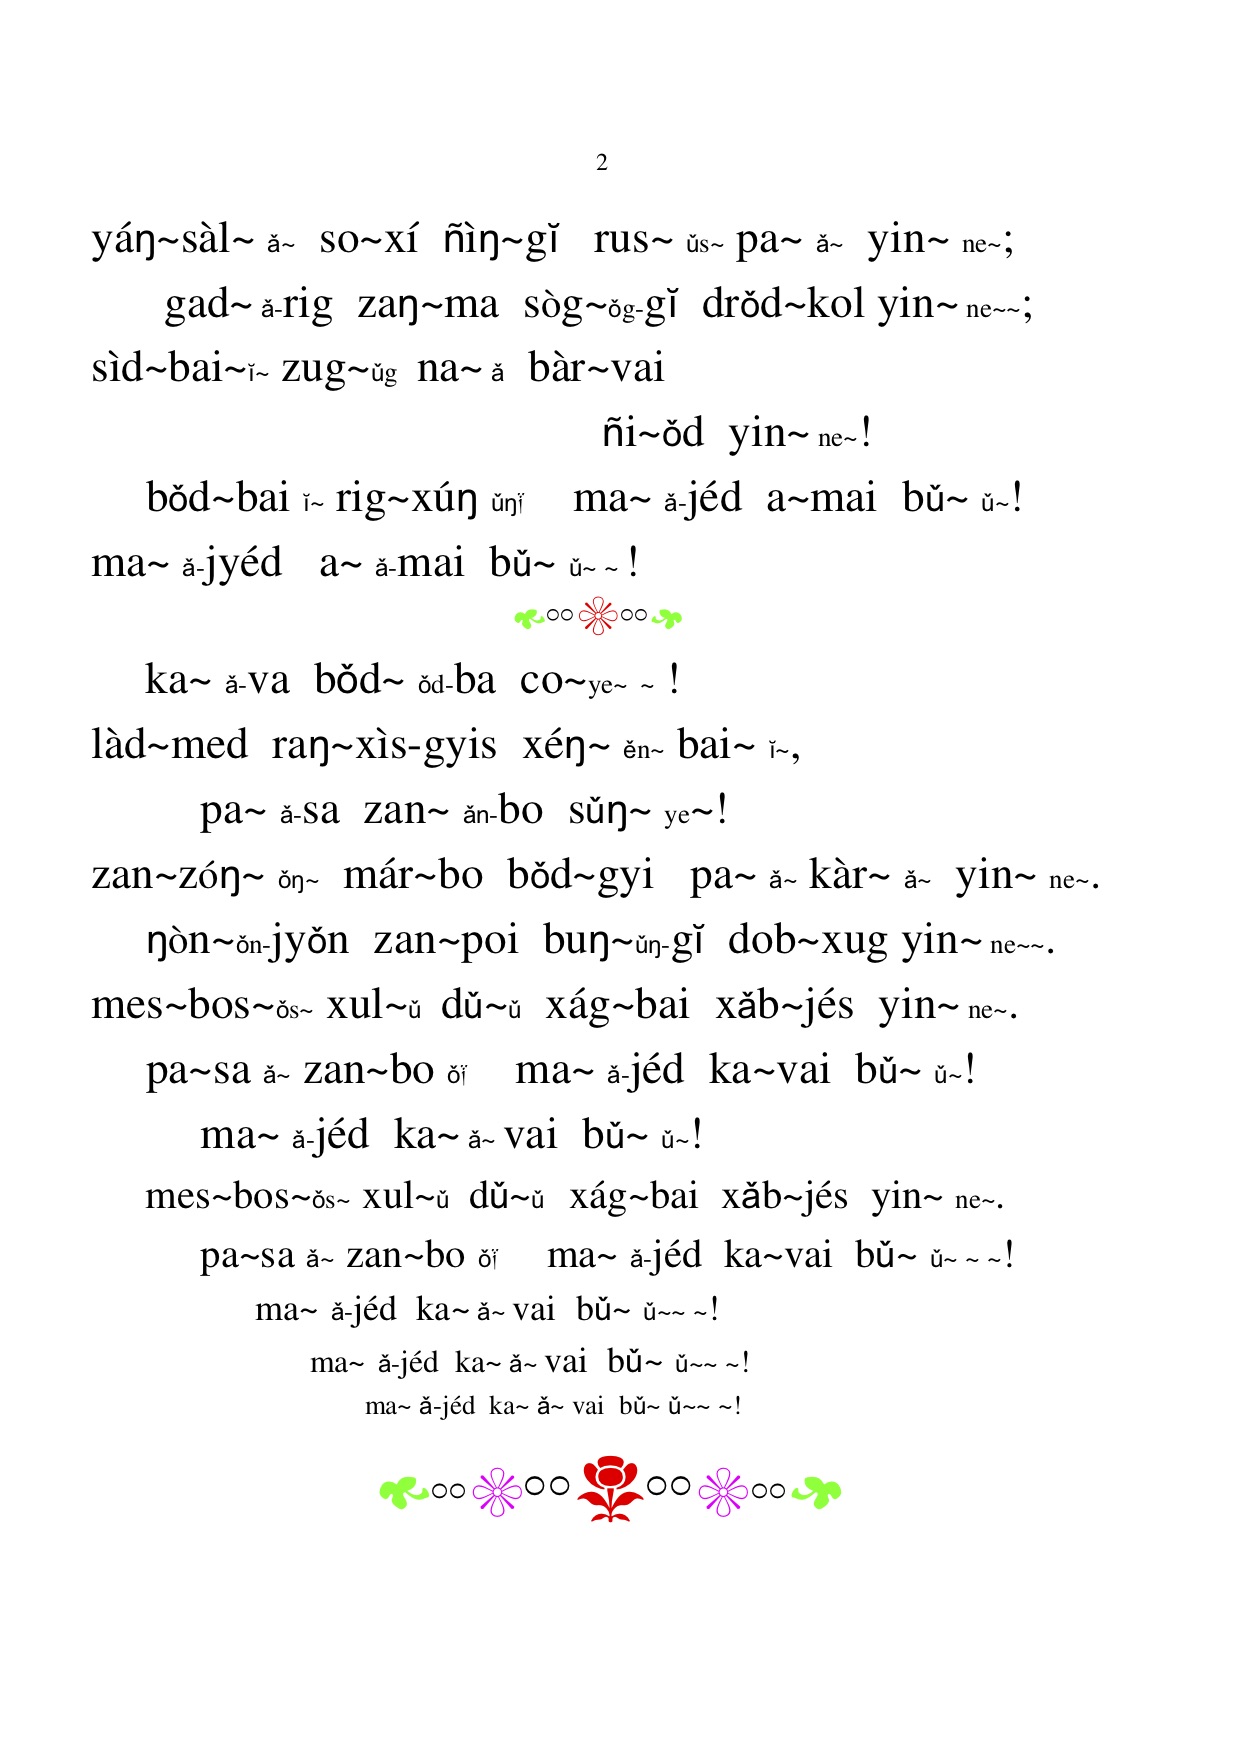 2
yáŋ~sàl~ ǎ~ so~xí ñìŋ~gĭ rus~ ǔs~ pa~ ǎ~ yin~ ne~;
gad~ ǎ-rig zaŋ~ma sòg~ǒg-gĭ drǒd~kol yin~ ne~~;
sìd~bai~ĭ~ zug~ǔg na~ ǎ bàr~vai
ñi~ǒd yin~ ne~!
bǒd~bai ĭ~ rig~xúŋ ǔŋï ma~ ǎ-jéd a~mai bǔ~ ǔ~!
ma~ ǎ-jyéd a~ ǎ-mai bǔ~ ǔ~ ~ !
ka~ ǎ-va bǒd~ ǒd-ba co~ye~ ~ !
làd~med raŋ~xìs-gyis xéŋ~ ěn~ bai~ ĭ~,
pa~ ǎ-sa zan~ ǎn-bo sǔŋ~ ye~!
zan~zóŋ~ ǒŋ~ már~bo bǒd~gyi pa~ ǎ~ kàr~ ǎ~ yin~ ne~.
ŋòn~ǒn-jyǒn zan~poi buŋ~ǔŋ-gĭ dob~xug yin~ ne~~.
mes~bos~ǒs~ xul~ǔ dǔ~ǔ xág~bai xǎb~jés yin~ ne~.
pa~sa ǎ~ zan~bo ǒï ma~ ǎ-jéd ka~vai bǔ~ ǔ~!
ma~ ǎ-jéd ka~ ǎ~ vai bǔ~ ǔ~!
mes~bos~ǒs~ xul~ǔ dǔ~ǔ xág~bai xǎb~jés yin~ ne~.
pa~sa ǎ~ zan~bo ǒï ma~ ǎ-jéd ka~vai bǔ~ ǔ~ ~ ~!
ma~ ǎ-jéd ka~ ǎ~ vai bǔ~ ǔ~~ ~!
ma~ ǎ-jéd ka~ ǎ~ vai bǔ~ ǔ~~ ~!
ma~ ǎ-jéd ka~ ǎ~ vai bǔ~ ǔ~~ ~!